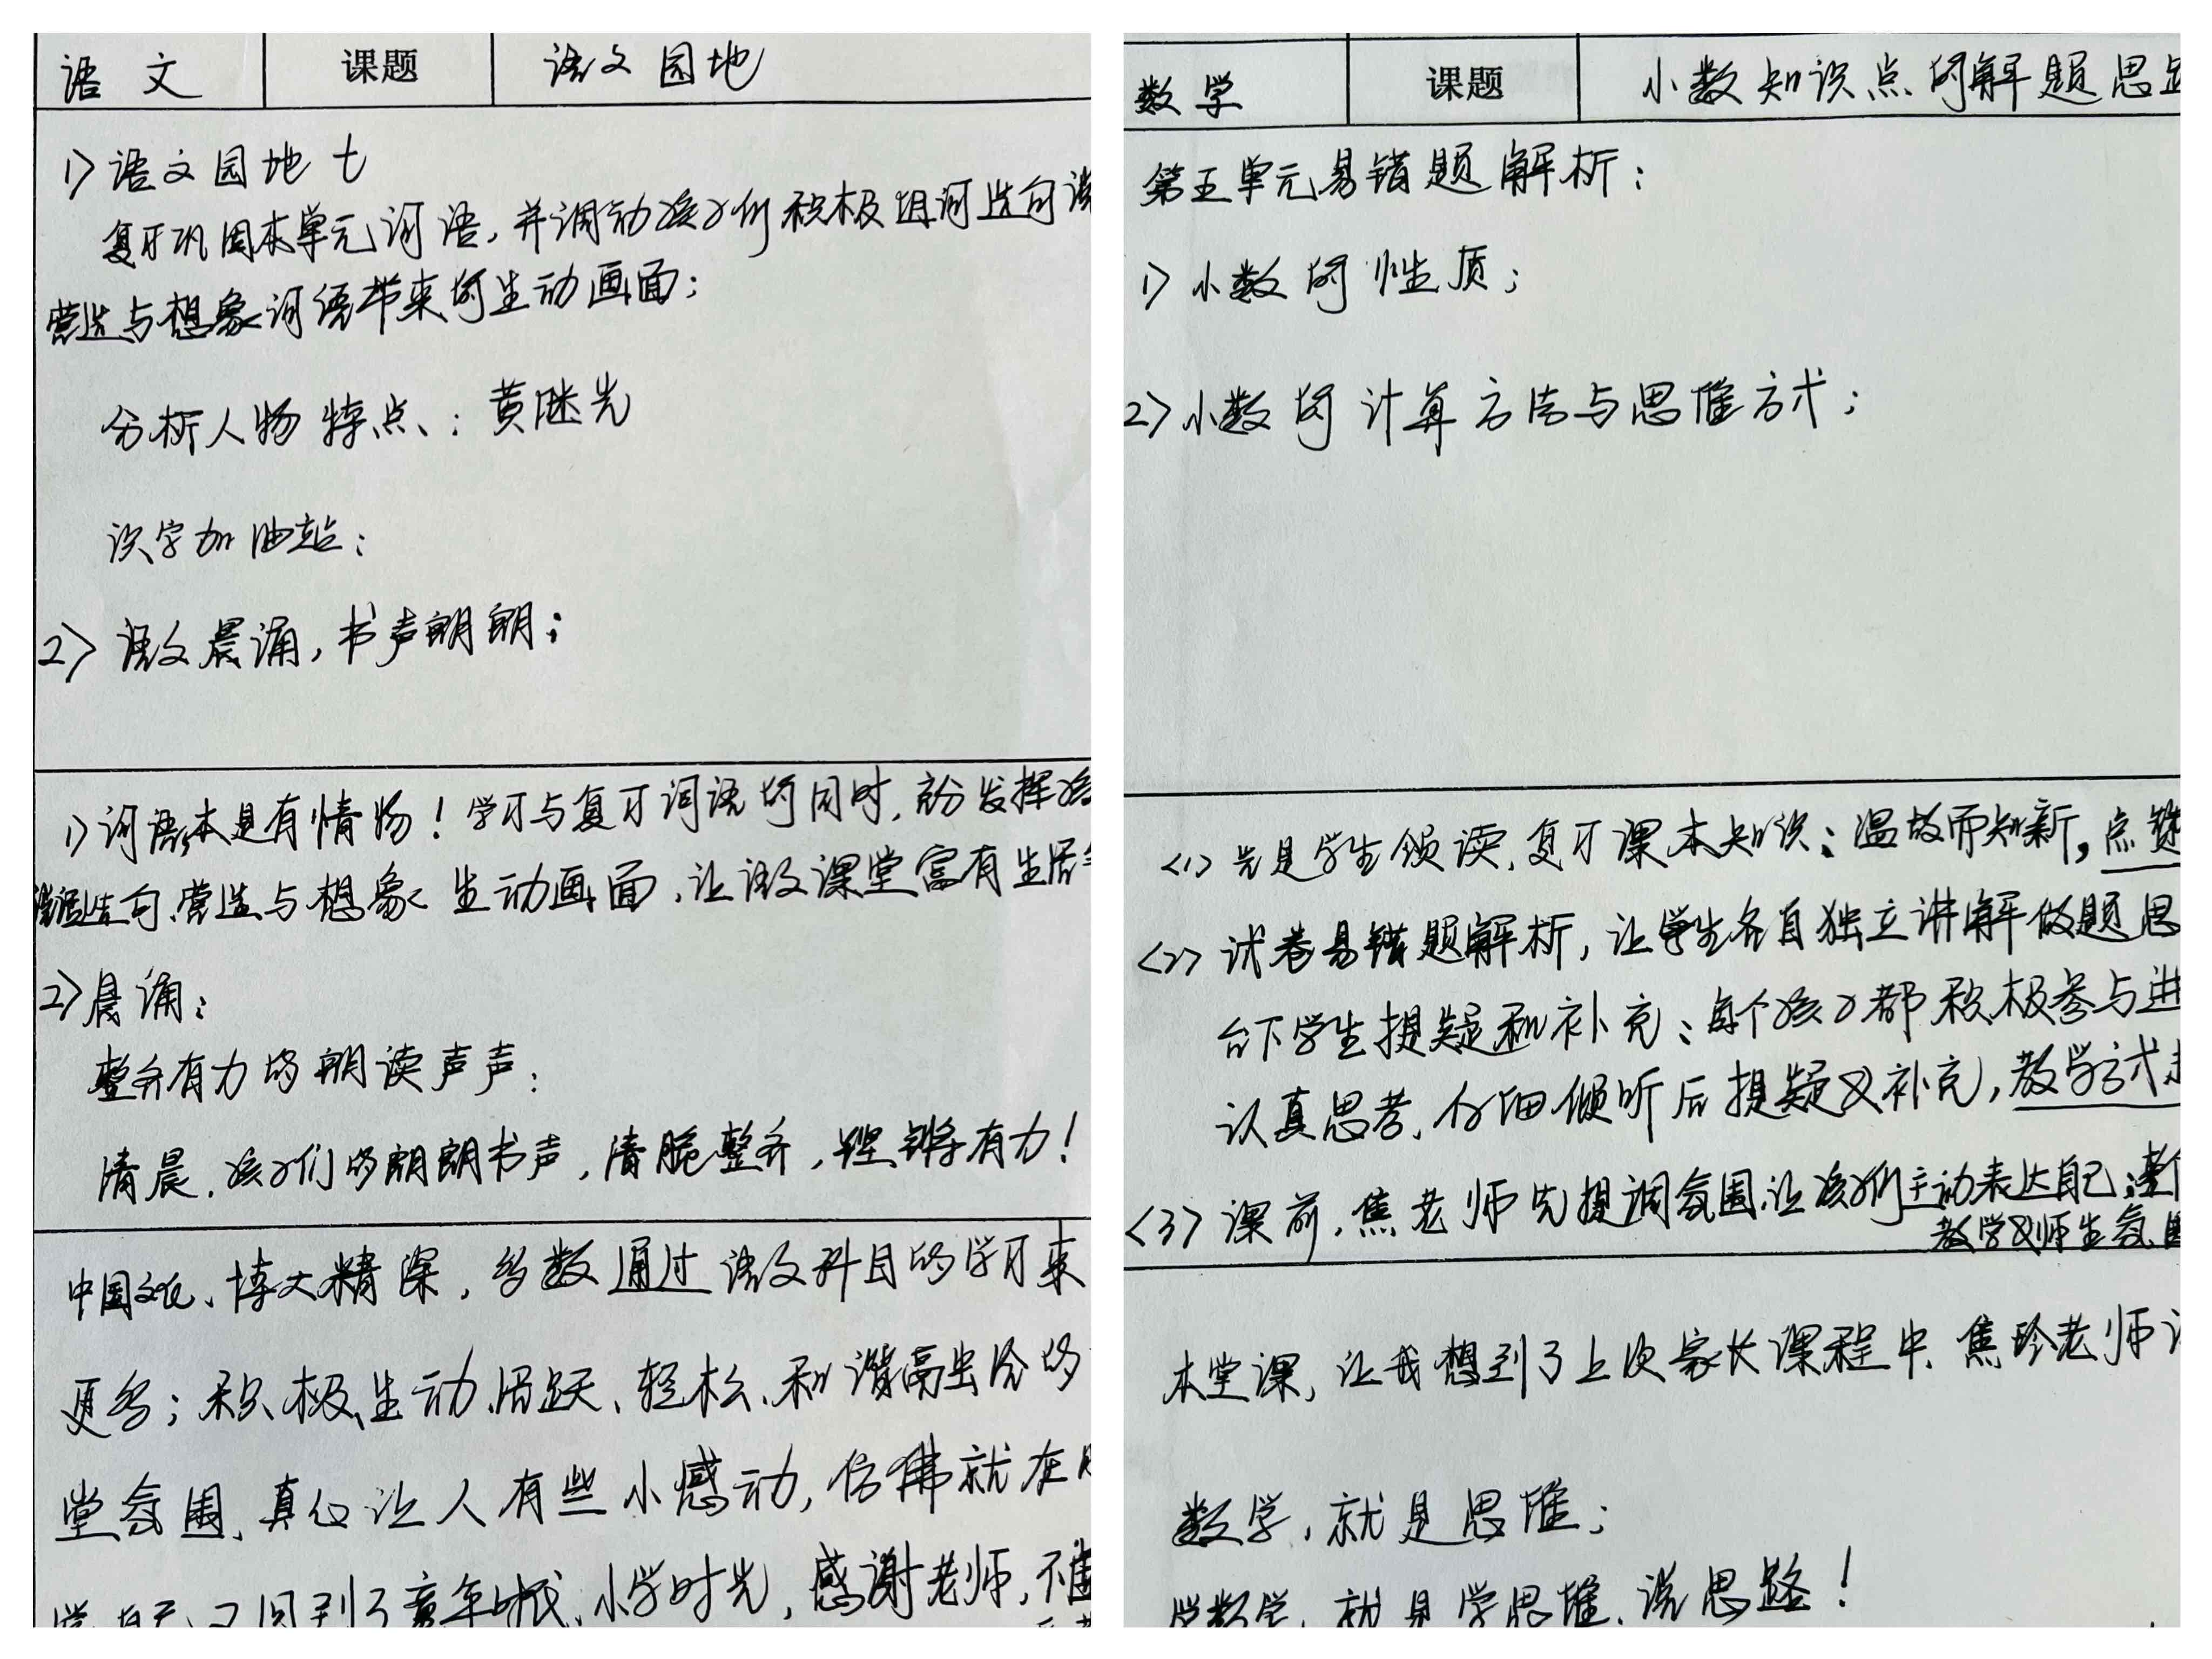 语文 课题 语文园地
1> 语文园地七
复习巩固本单元词语,并调动孩子们积极组词造句
营造与想象词语带来的生动画面;
分析人物特点:黄继光
识字加油站:
2> 语文晨诵,书声朗朗;
1> 词语本是有情物!学习与复习词语的同时,充分发挥孩
造句、营造与想象生动画面,让语文课堂富有生活
2> 晨诵:
整齐有力的朗读声声:
清晨,孩子们的朗朗书声,清脆整齐,铿锵有力!
中国文化、博大精深,多数通过语文科目的学习来
更多;积极、生动、活跃、轻松、和谐高出分的
堂氛围,真心让人有些小感动,仿佛就在
又回到了童年时代、小学时光,感谢老师,
数学 课题 小数知识点的解题思路
第五单元易错题解析:
1> 小数的性质;
2> 小数的计算方法与思维方式;
<1> 先是学生领读,复习课本知识;温故而知新,点赞
<2> 试卷易错题解析,让学生各自独立讲解做题思
台下学生提疑和补充;每个孩子都积极参与进
认真思考,仔细倾听后提疑又补充,教学方式
<3> 课前,焦老师先提调氛围,让孩子们主动表达自己;整个
教学及师生氛围
本堂课,让我想到了上次家长课程中,焦玲老师
数学,就是思维;
学数学,就是学思维、说思路!